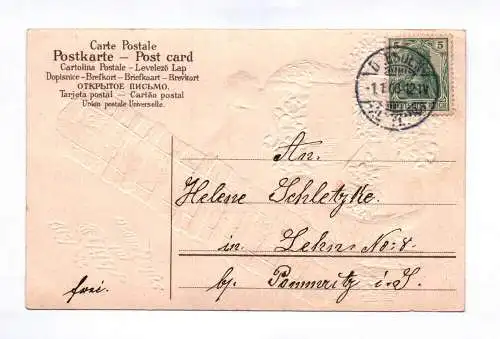 Carte Postale
Postkarte — Post card
Cartolina Postale – Levelező Lap
Dopisnice – Brefkort – Briefkaart – Brevkort
ОТКРЫТОЕ ПИСЬМО.
Tarjeta postal — Cartão postal
Union postale Universelle.
5 5
An.
Helene Schletzke.
in. Lehn No: 8.
bz. Pommritz i. S.
frei.